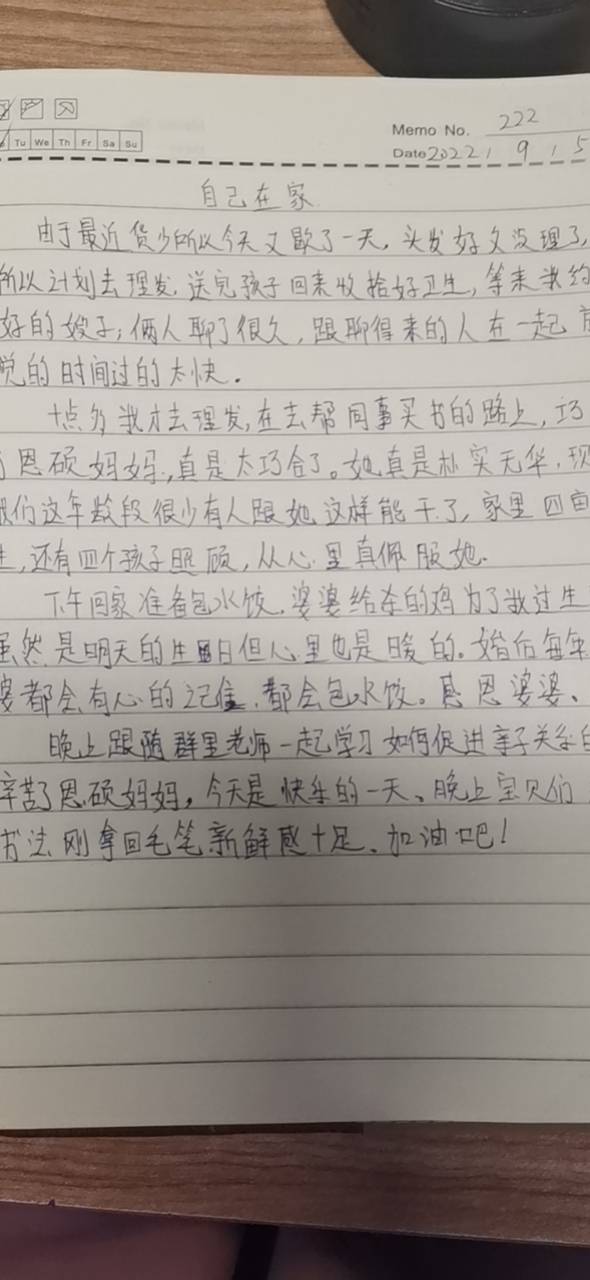 Tu We Th Fr Sa Su
Memo No. 222
Date 2022 / 9 / 5
自己在家
由于最近货少所以今天又歇了一天，头发好久没理了，
所以计划去理发，送完孩子回来收拾好卫生，等来我约
好的嫂子，俩人聊了很久，跟聊得来的人在一起
觉的时间过的太快。
十点多我才去理发，在去帮同事买书的路上，巧
恩硕妈妈，真是太巧合了。她真是朴实无华，现
我们这年龄段很少有人跟她这样能干了，家里四亩
，还有四个孩子照顾，从心里真佩服她.
下午回家准备包水饺，婆婆给杀的鸡为了我过生
虽然是明天的生日但心里也是暖的。婚后每年
婆都会有心的记住，都会包水饺。感恩婆婆、
晚上跟随群里老师一起学习如何促进亲子关系的
辛苦了恩硕妈妈，今天是快乐的一天、晚上宝贝们
书法刚拿回毛笔新鲜感十足、加油吧！